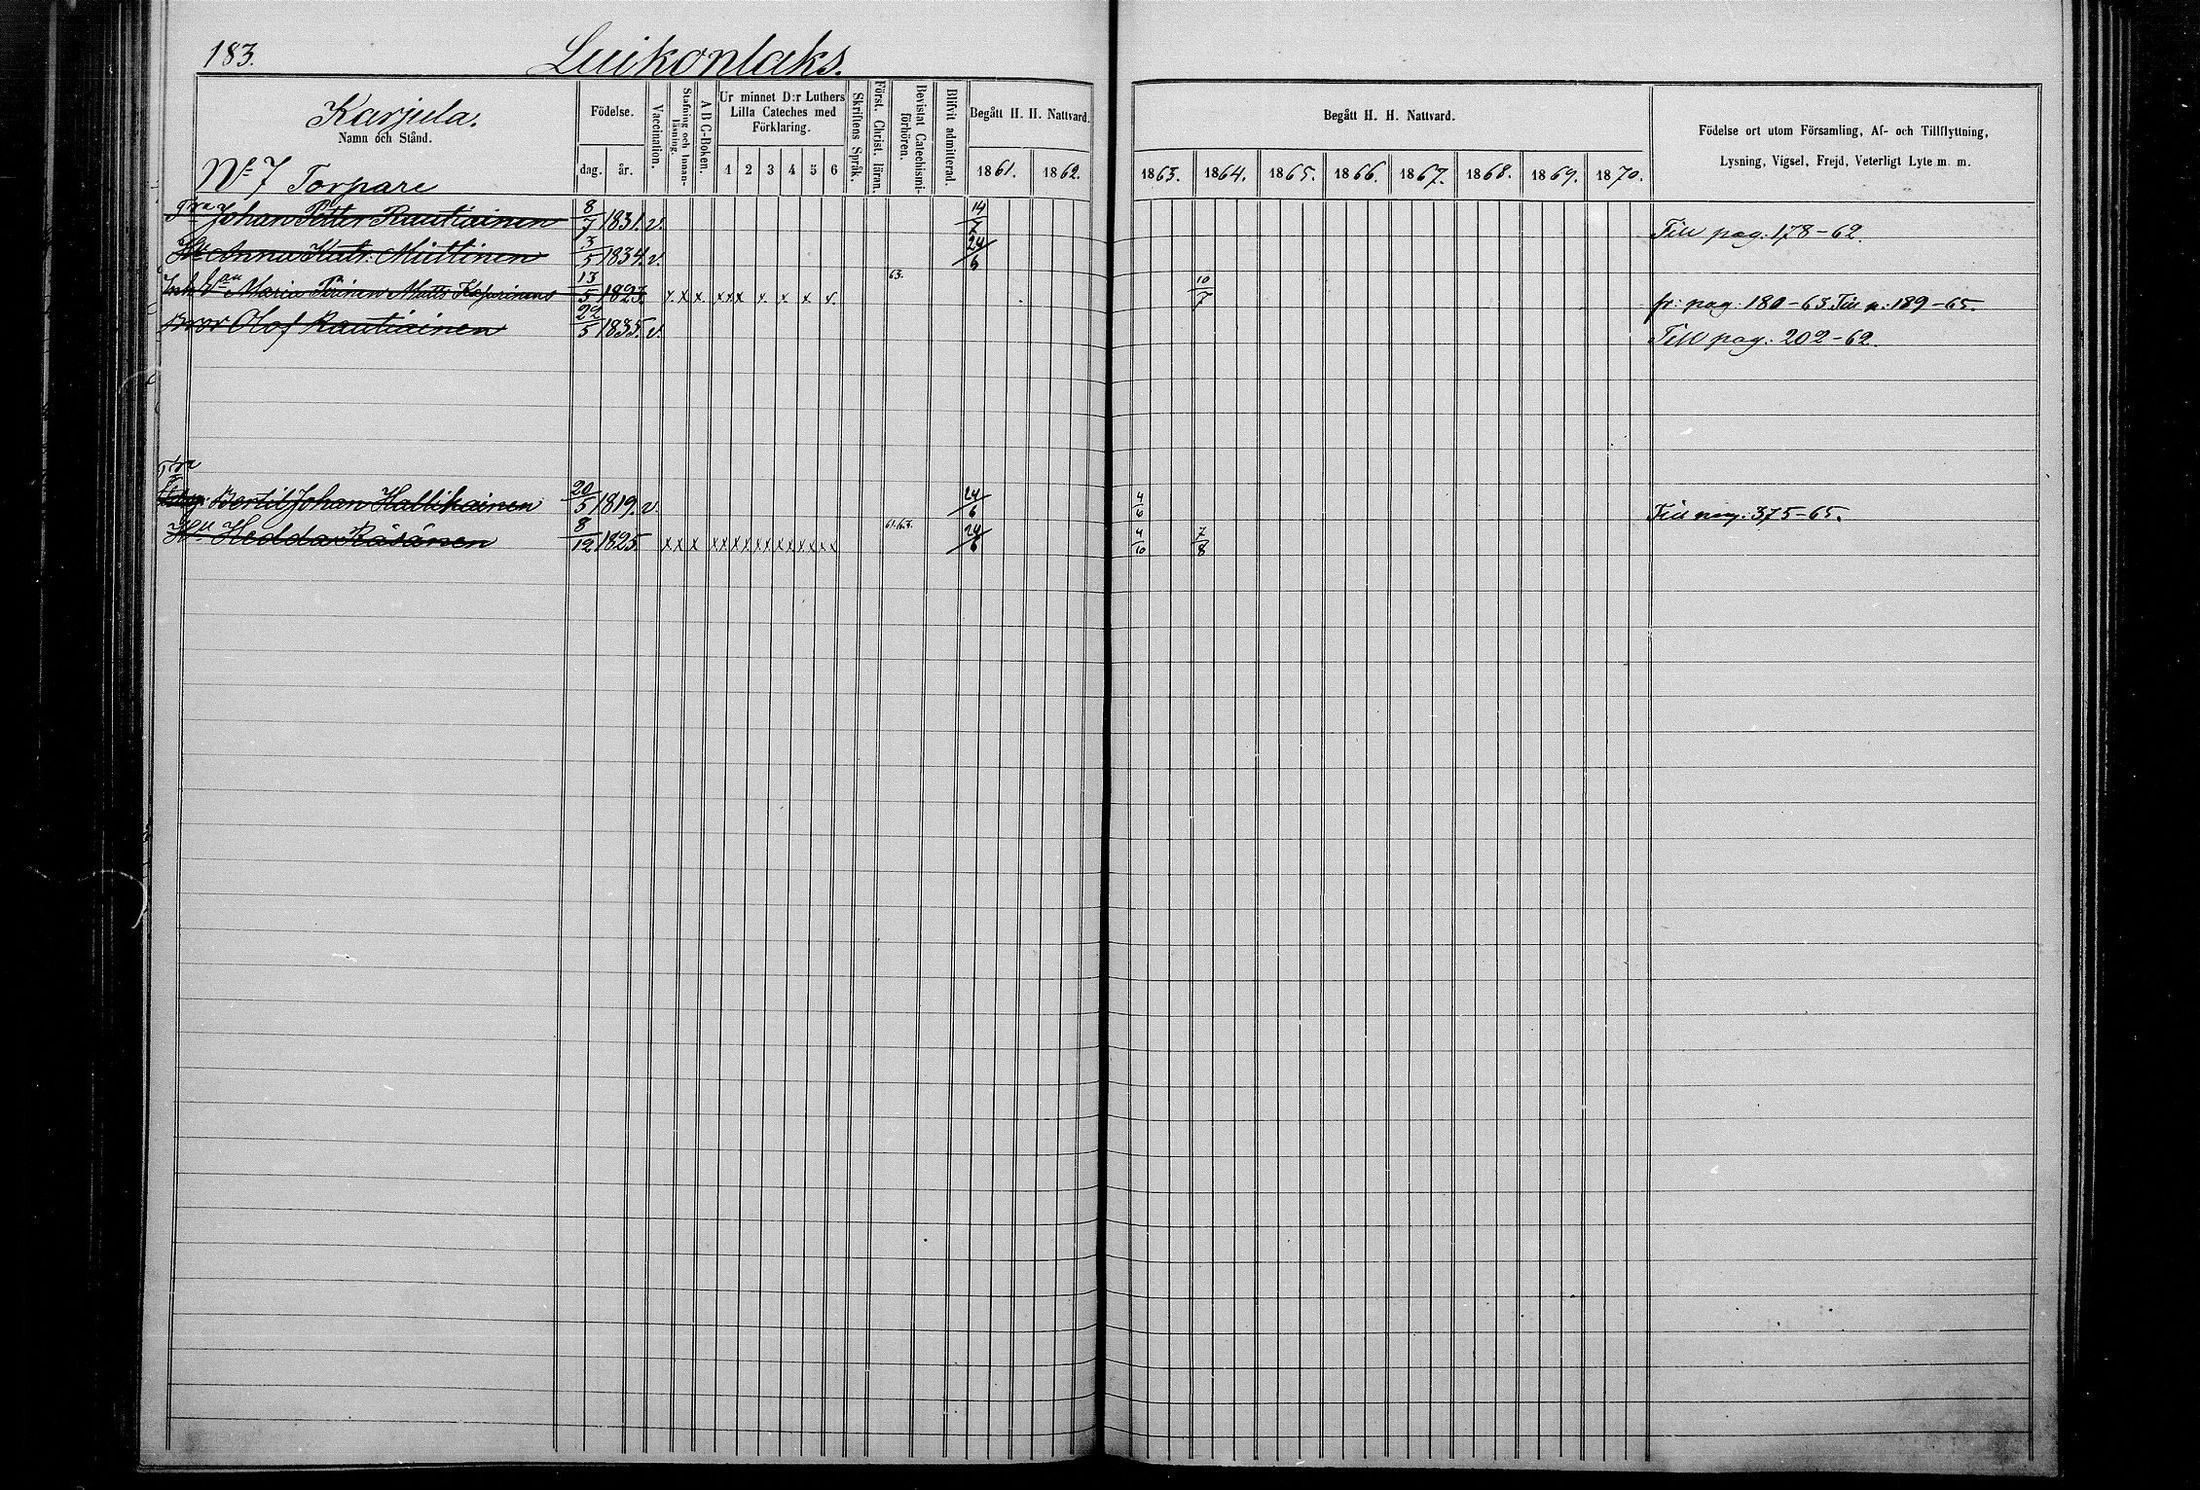 183.
Luikonlaks.
Karjula.
Namn och Stånd.
Födelse.
dag. år.
Vaccination.
Stafning och Innan-läsning.
A B C-Boken.
Ur minnet D:r Luthers Lilla Cateches med Förklaring.
1 2 3 4 5 6
Skriftens Språk.
Först. Christ. läran.
Bevistat Catechismi-förhören.
Blifvit admitterad.
Begått H. H. Nattvard.
1861. 1862.
Begått H. H. Nattvard.
1863. 1864. 1865. 1866. 1867. 1868. 1869. 1870.
Födelse ort utom Församling, Af- och Tillflyttning,
Lysning, Vigsel, Frejd, Veterligt Lyte m. m.
No 7 Torpare
Johan Petter Rautiainen 8/7 1831. v. 14/7 Till pag: 178-62.
Hu Anna Katr. Miettinen 3/5 1834. v. 24/6
Maria Matts 13/5 1823. x x x xxx x x x x 63. 10/7 fr: pag: 180-63 Till p: 189-65.
Bror Olof Rautiainen 22/5 1835. v. Till pag: 202-62.
Bertil Johan Hallikainen 20/5 1819. v. 24/6 4/6 Till pag: 375-65.
Hu Hedda Räsänen 8/12 1825. x x x x x x x x x x x x x x 61.63. 24/6 4/10 7/8